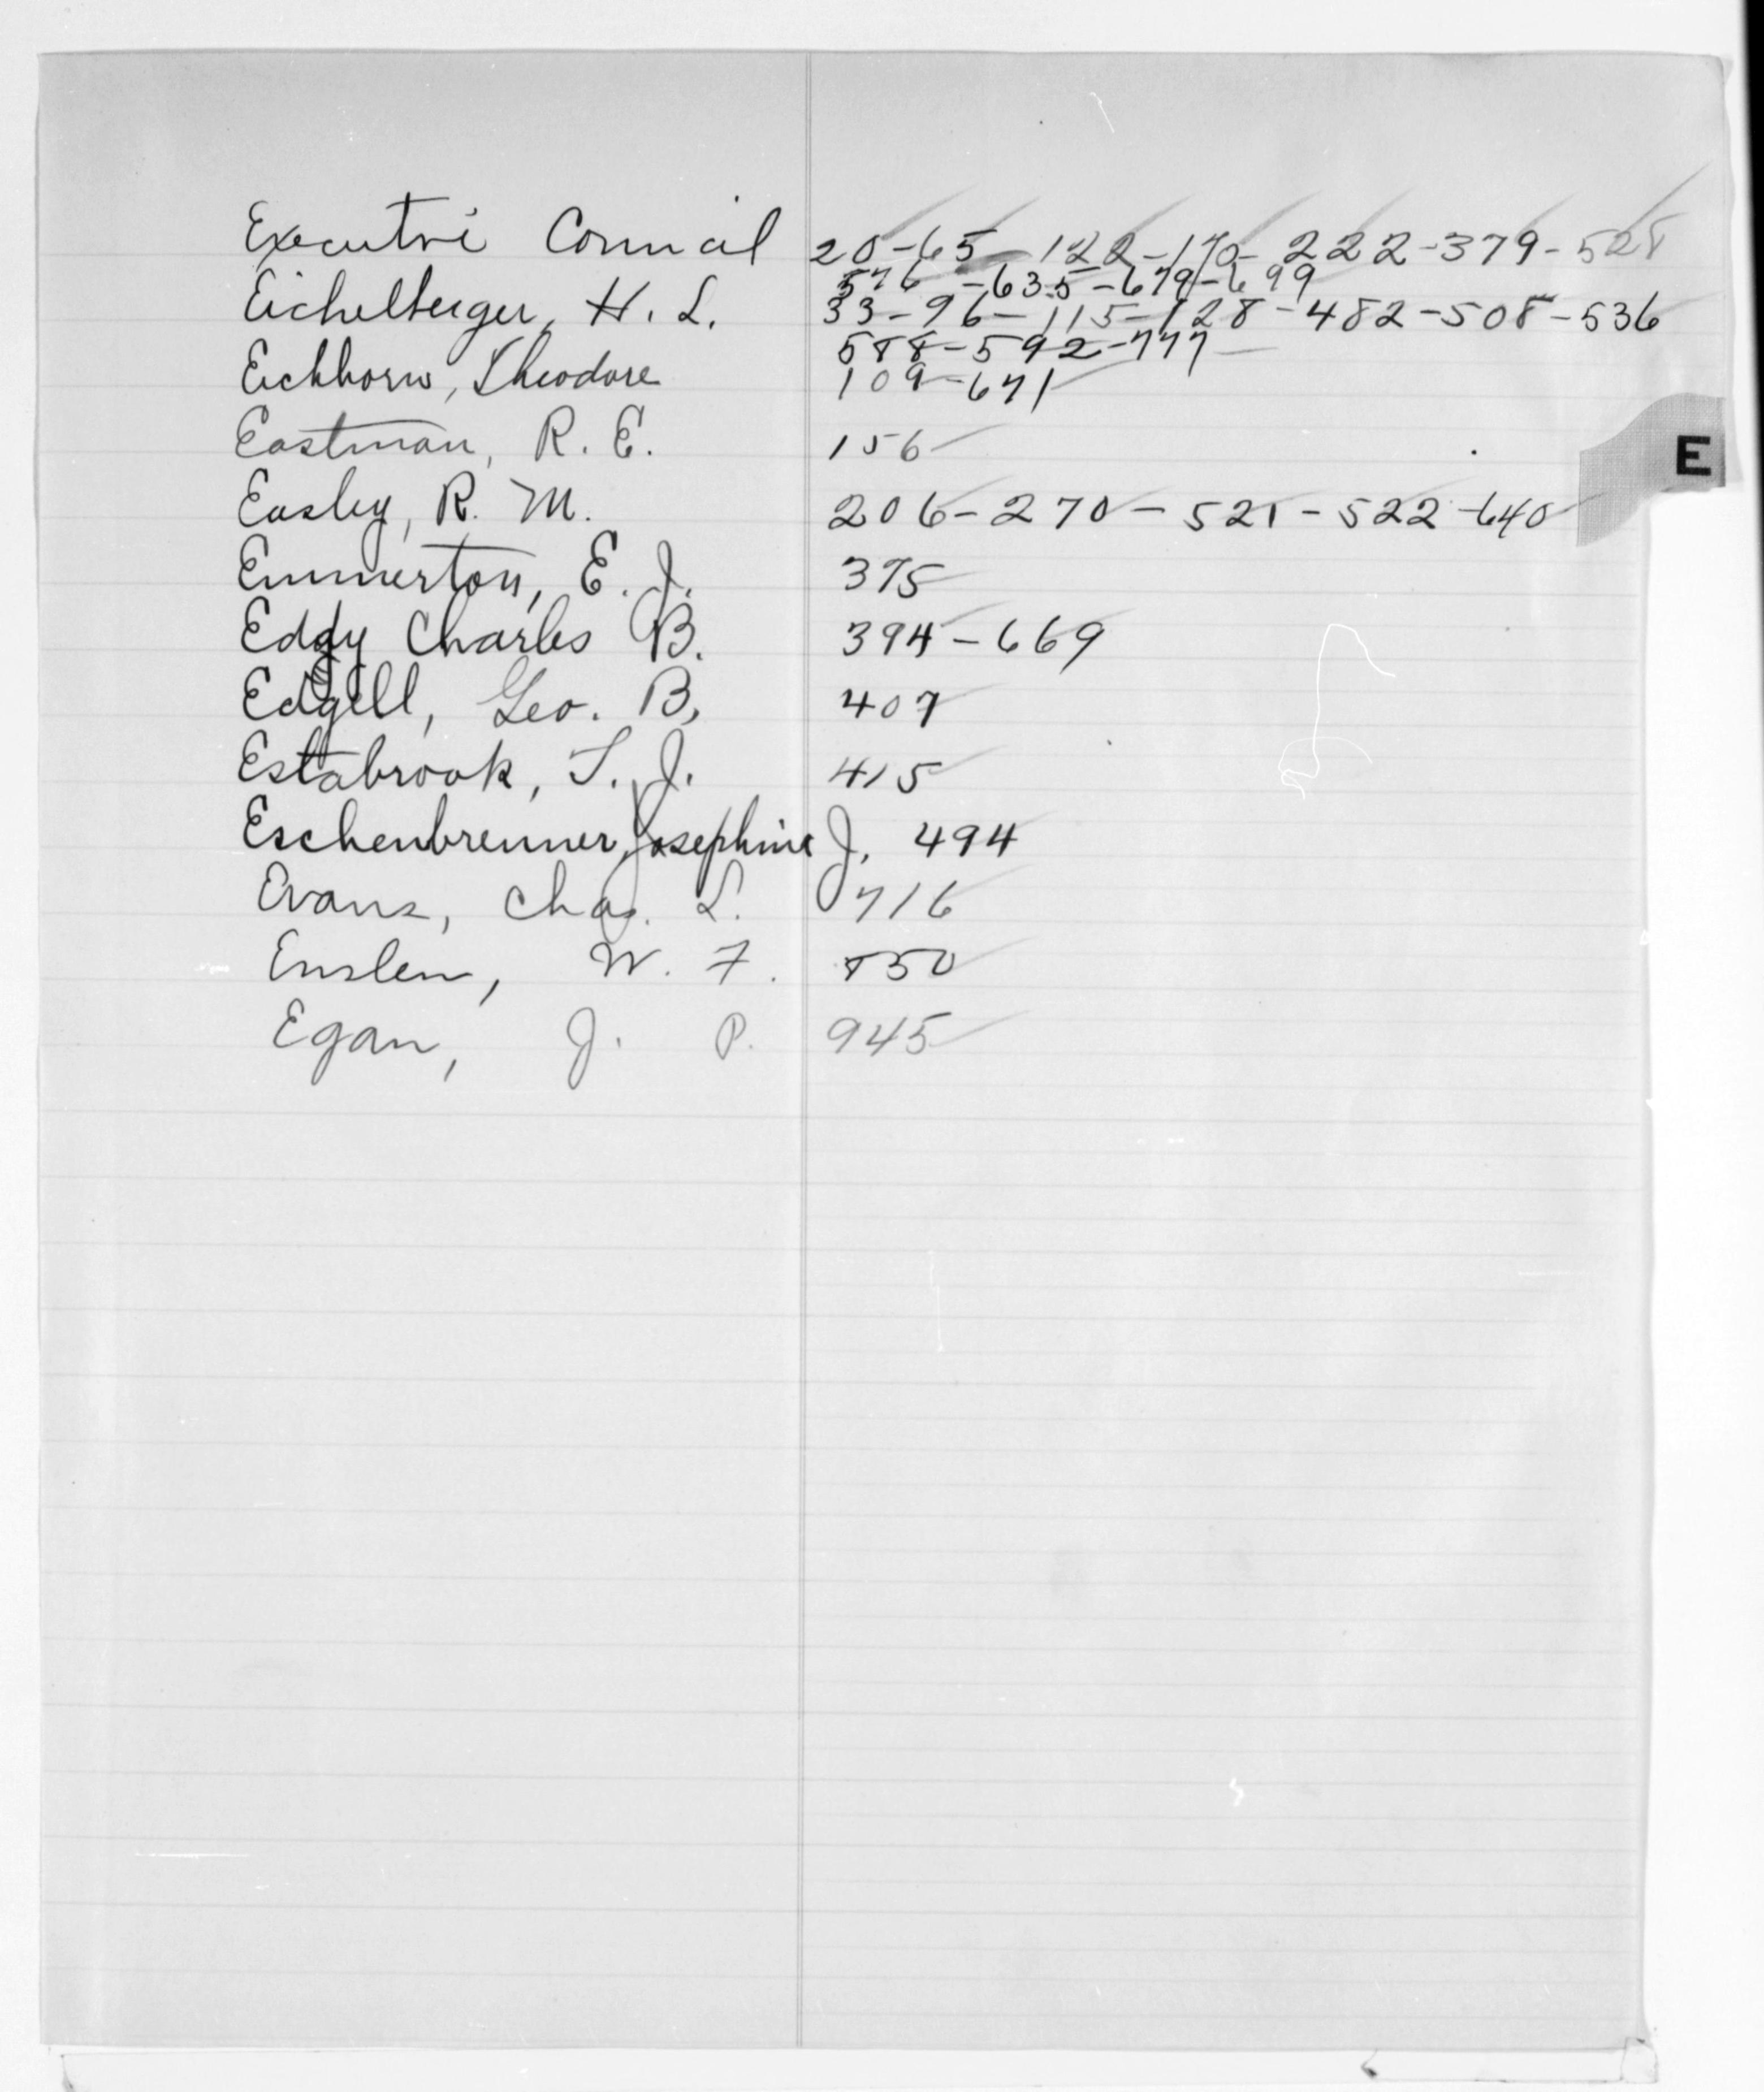 Executive Council 20-65-122-170-222-379-528
576-635-679-699
Eichelberger, H. L. 33-96-115-128-482-508-536
588-592-777
Eichhorn, Theodore 109-671
Eastman, R. E. 156
E
Easley, R. M. 206-270-521-522-640
Emmerton, E. J. 375
Eddy Charles B. 394-669
Edgell, Geo. B, 407
Estabrook, T. J. 415
Eschenbrenner, Josephine J. 494
Evans, Chas. L. 716
Enslen, W. F. 850
Egan, J. P. 945